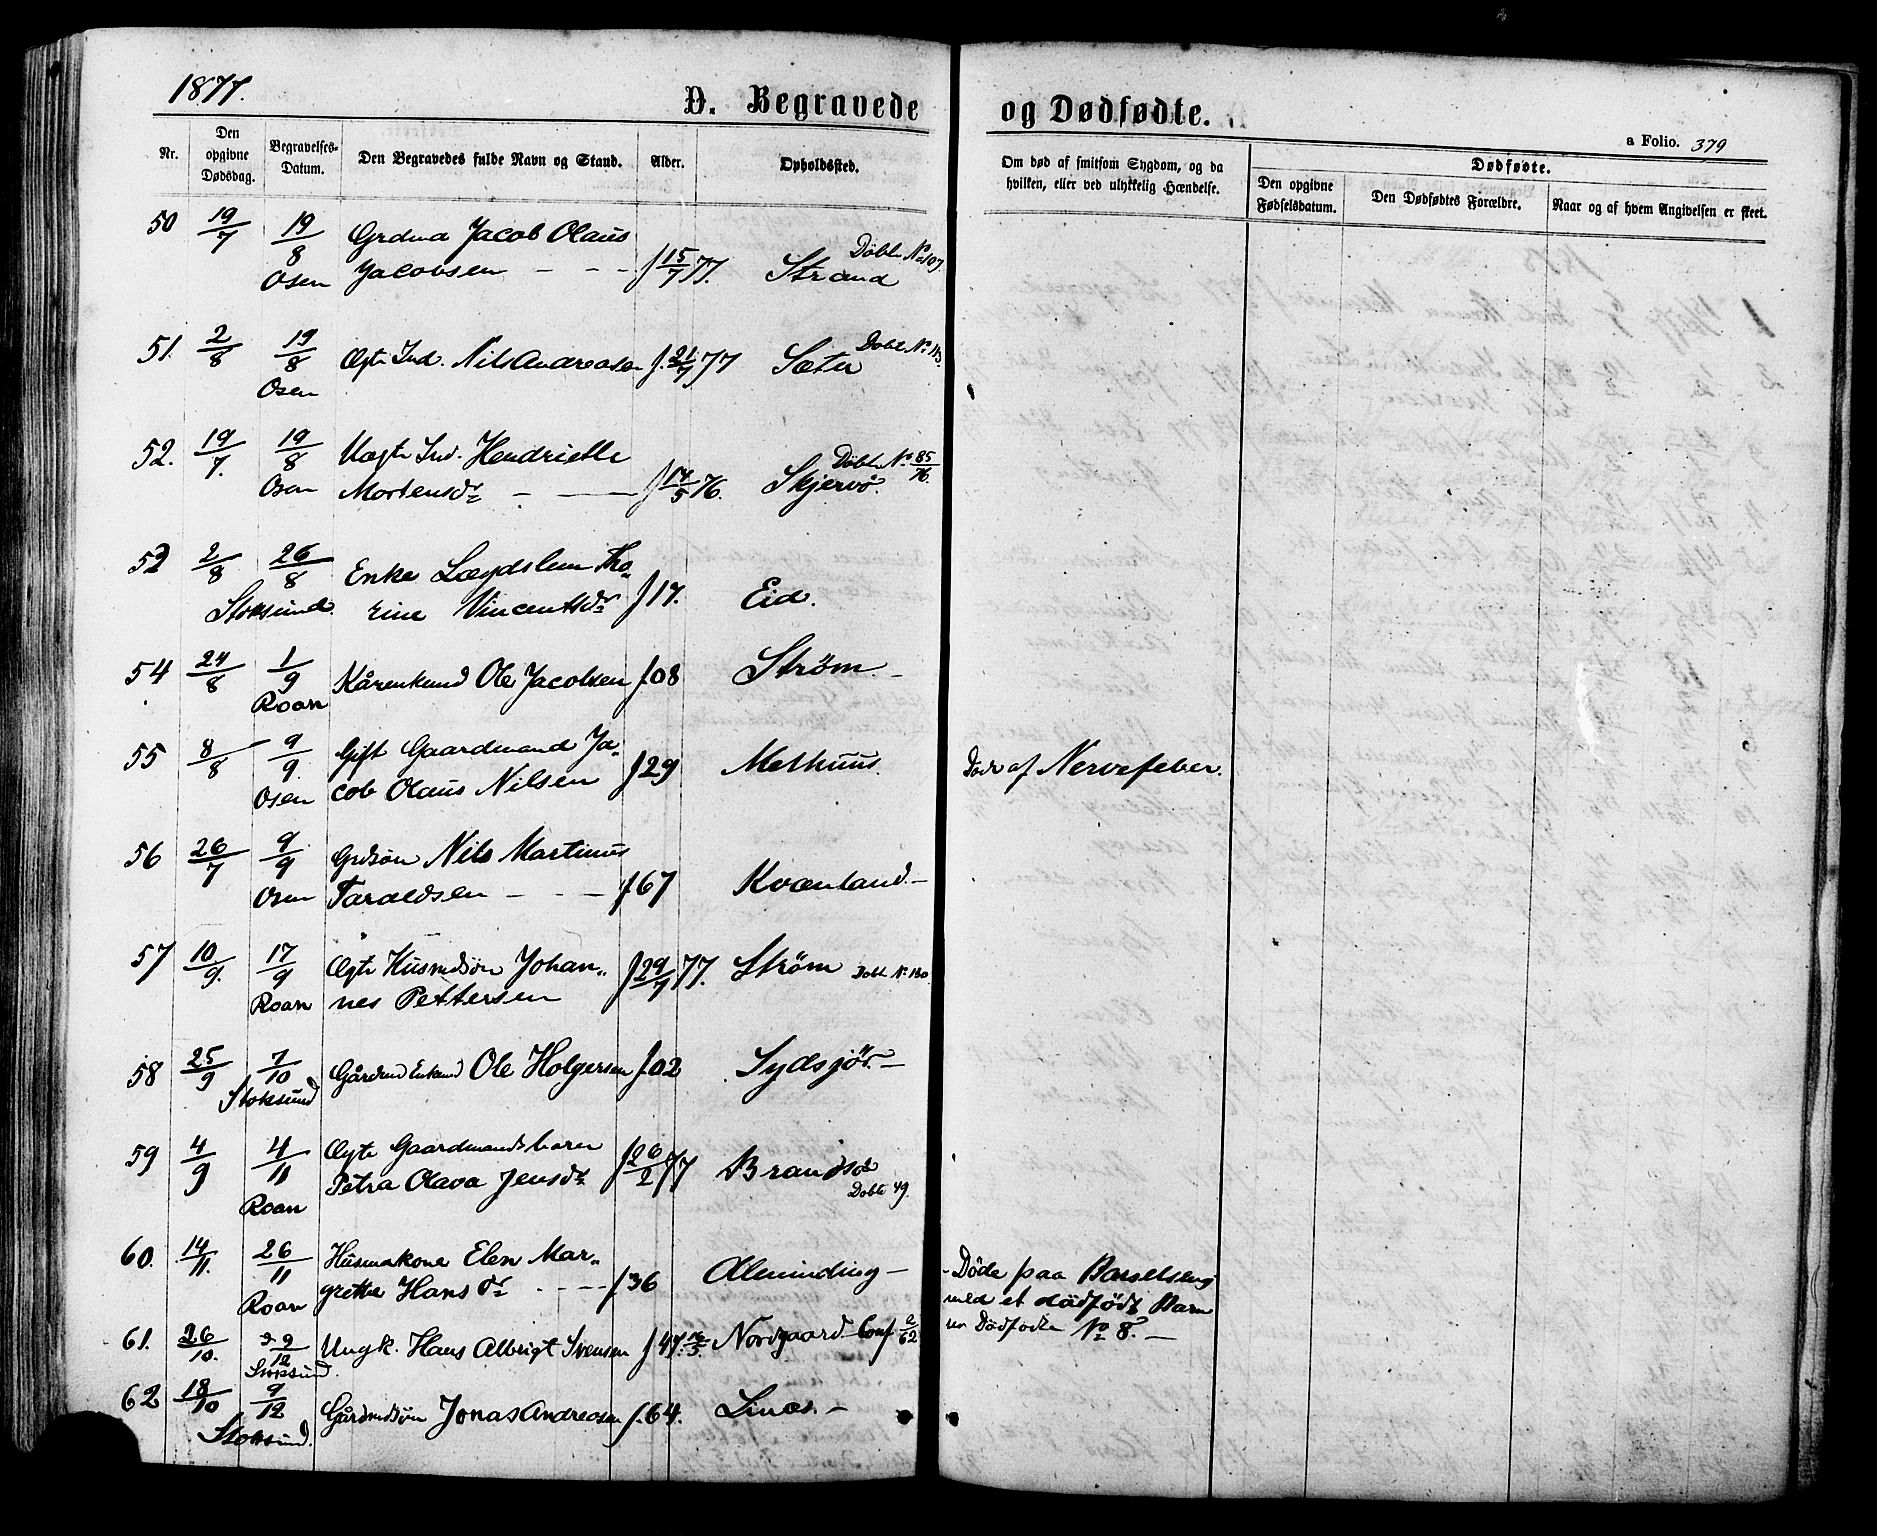 1877.
D. Begravede og Dødfødte.
a Folio. 379
Nr.
Den opgivne Dødsdag.
Begravelses-Datum.
Den Begravedes fulde Navn og Stand.
Alder.
Opholdssted.
Om død af smitsom Sygdom, og da hvilken, eller ved ulykkelig Hændelse.
Dødfødte.
Den opgivne Fødselsdatum.
Den Dødfødtes Forældre.
Naar og af hvem Angivelsen er skeet.
50 19/7 19/8 Grdmd Jacob Olaus Døbte No 107.
Osen Jacobsen - - - f 15/7 77. Strand
51. 2/8 19/8 Ægte Ind. Nils Andreasen f. 21/7 77 Sæter Døbte No 113
Osen
52. 19/7. 19/8 Uægte Ind. Hendriette Døbte No 85/76.
Osen Mortensdr - — f 14/5 76. Skjervö.
53 2/8 26/8 Enke Lægdslem Tho-
Stoksund. rine Vincentsdr f 17. Eid.
54 24/8 1/9 Kårenkmd Ole Jacobsen f 08 Strøm.-
Roan
55 8/8 9/9. Gift Gaardmand Ja- Methuus. Døde af Nervefeber.
Osen cob Olaus Nilsen f 29
56 26/7 9/9 Grdsøn Nils Martinus
Osen Taraldsen - - - f 67 Kvænland.-
57 10/9. 17/9 Ægte Husmdsøn Johan- f 29/7 77. Strøm Døbte No 130
Roan nes Pettersen
58 25/9 7/10 Gårdmd Enkmd Ole Holgersen f. 02 Sydsjör.-
Stoksund
59 4/9 4/11 Ægte Gaardmandsbarn f 26/2 77 Brandsø
Roan Petra Olava Jensdr Døbte 49.
60. 14/11. 26/11 Husmakone Elen Mar- Alminding - - Döde paa Barselseng
Roan grethe Hansdr - - - f 36 med et dödfödt Barn
No 8. -
61. 26/10. 9/12 Ungk. Hans Albrigt Svensen f 47. Nordgaard Conf 2/62
Stoksund.
62 18/10 9/12 Gårdmdsøn Jonas Andreasen f. 64. Linæs. -
Stoksund.